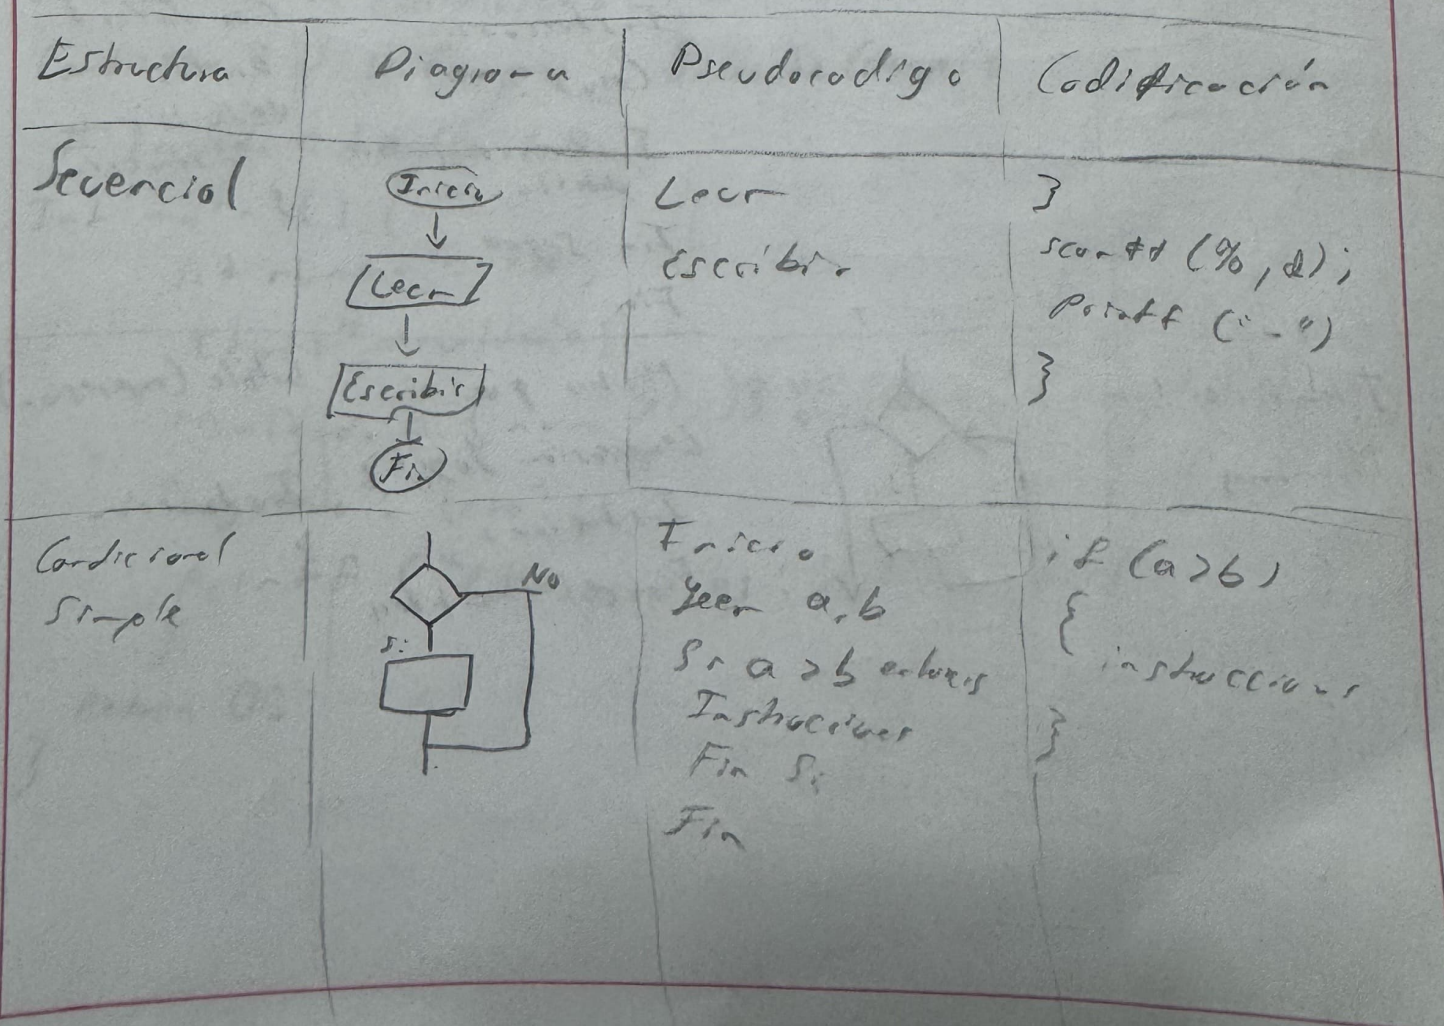 Estructura
Diagrama
Pseudocodigo
Codificación
Secuencial
Inicio
Leer
Escribir
Fin
Leer
Escribir
}
scanf (%, d);
Printf ("-")
}
Condicional
Simple
No
Si
Inicio
Leer a,b
Si a > b entonces
Instrucciones
Fin Si
Fin
if (a>b)
{
instrucciones
}